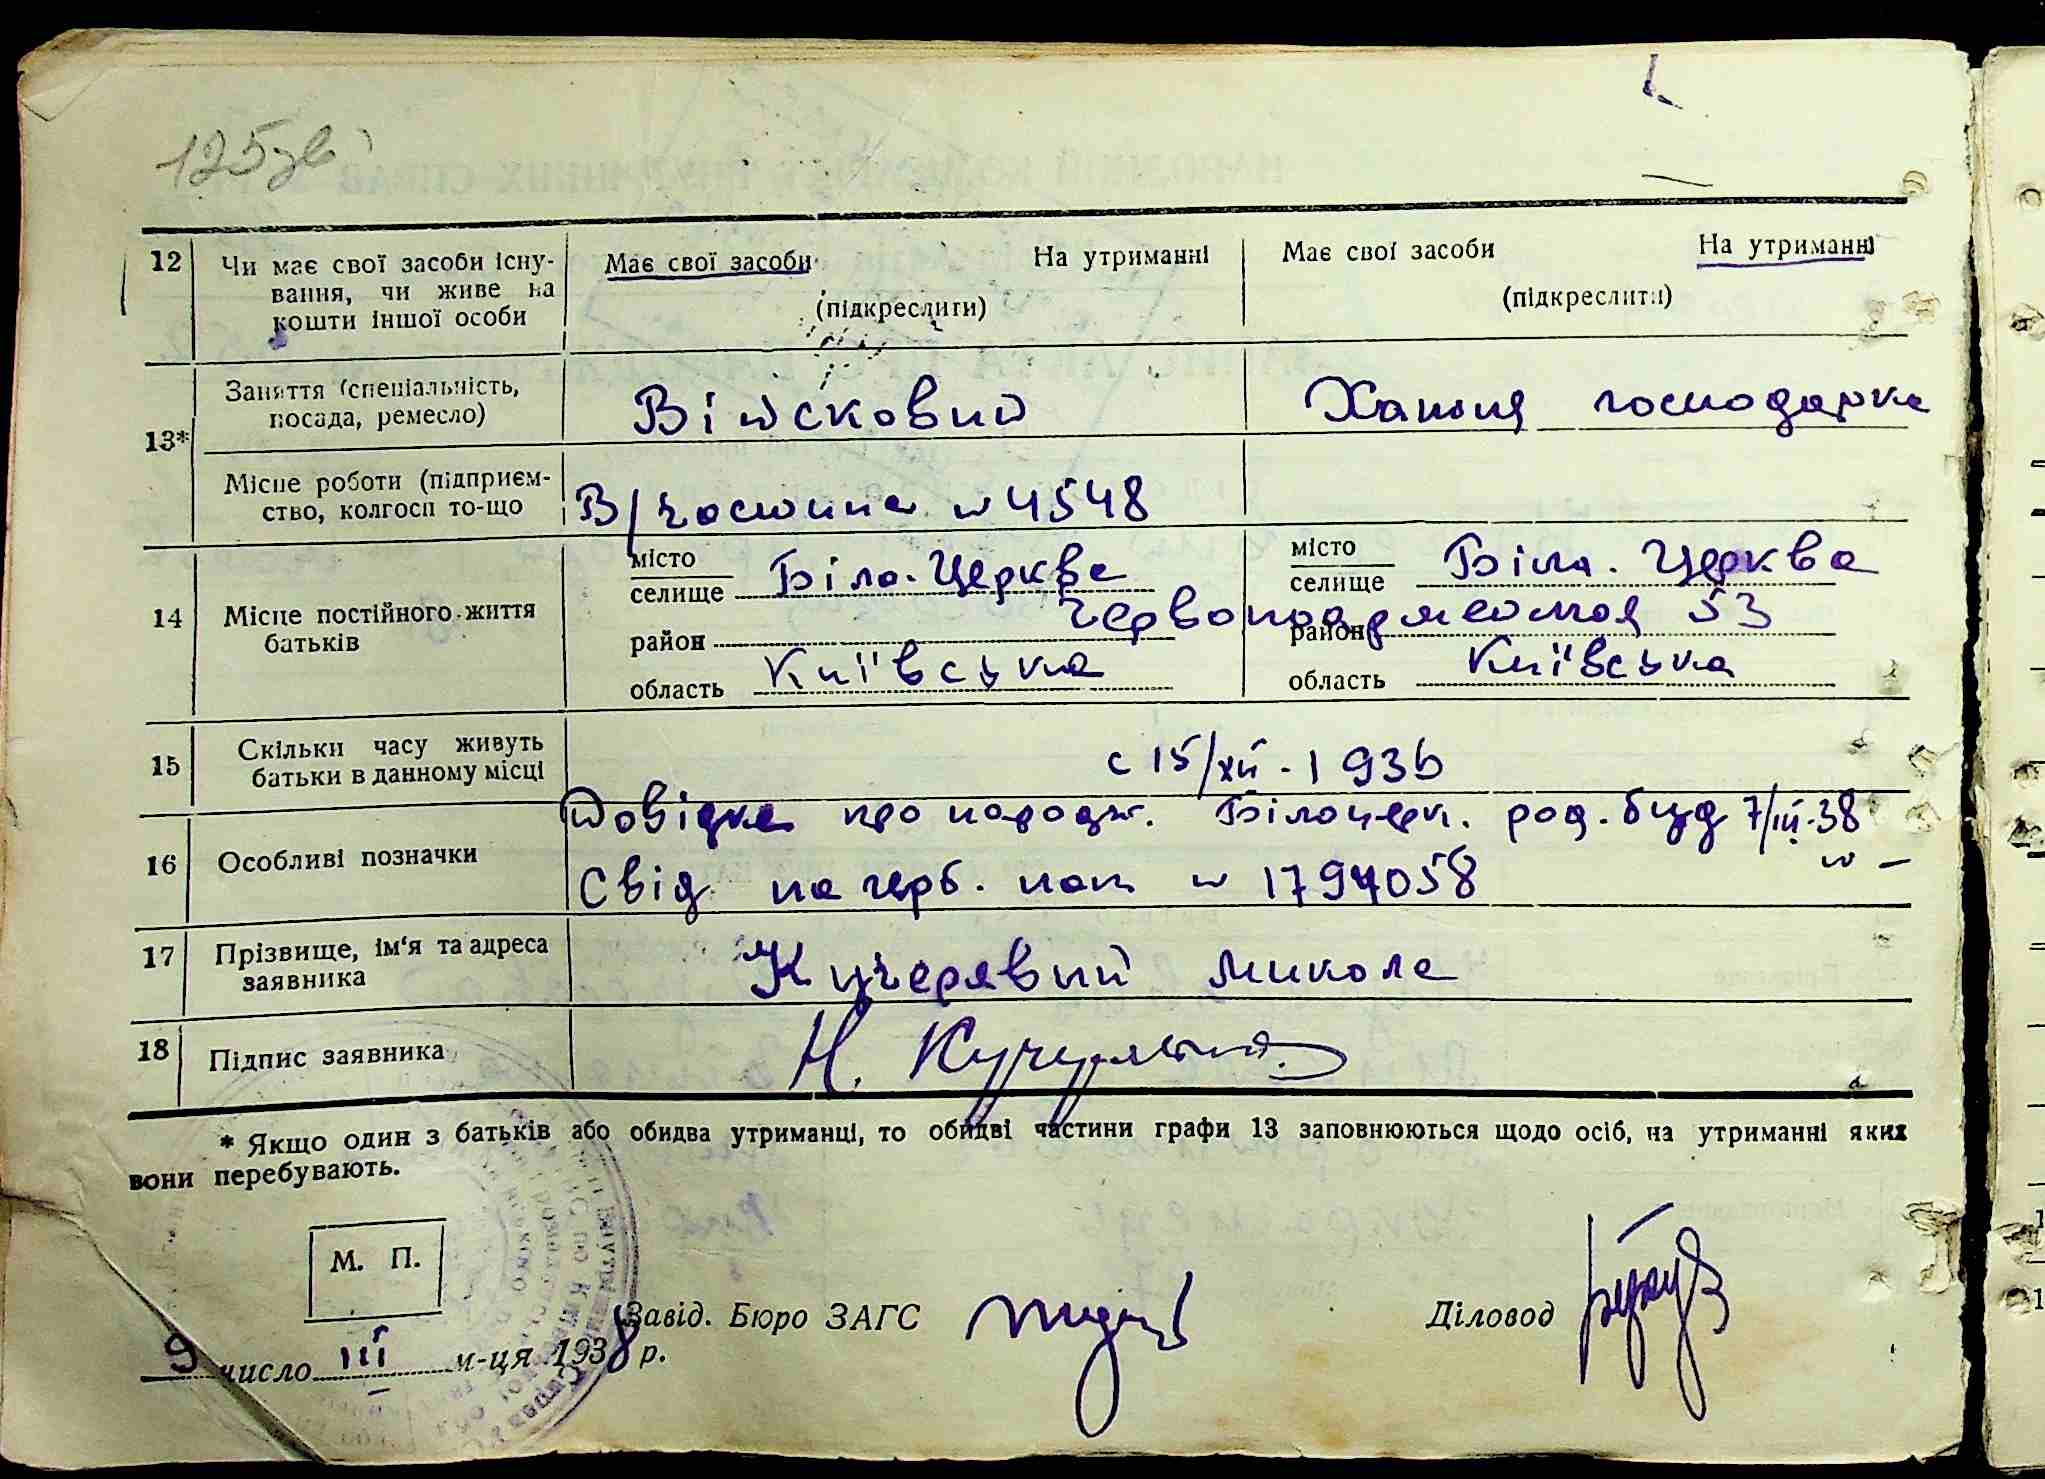 125зв
12 Чи має свої засоби існу-
вання, чи живе на
кошти іншої особи
Має свої засоби На утриманні
(підкреслити)
Має свої засоби На утриманні
(підкреслити)
13*
Заняття (спеціальність,
посада, ремесло)
Військовий
Хатня господарка
Місце роботи (підприєм-
ство, колгосп то-що
В/частина № 4548
14 Місце постійного життя
батьків
місто
селище Біла. Церква
район
область Київська
місто
селище Біла. Церква
район
Червоноармейская 53
область Київська
15 Скільки часу живуть
батьки в данному місці
с 15/XII - 1936
16 Особливі позначки
Довідка про народж. Білоцерк. род. буд 7/III-38
№ –
Свід на черв. пат № 1794058
17 Прізвище, ім'я та адреса
заявника
Кучерявий Микола
18 Підпис заявника
Н. Кучерявий
* Якщо один з батьків або обидва утриманці, то обидві частини графи 13 заповнюються щодо осіб, на утриманні яких
вони перебувають.
М. П.
Завід. Бюро ЗАГС
Діловод
9 число III м-ця 1938 р.